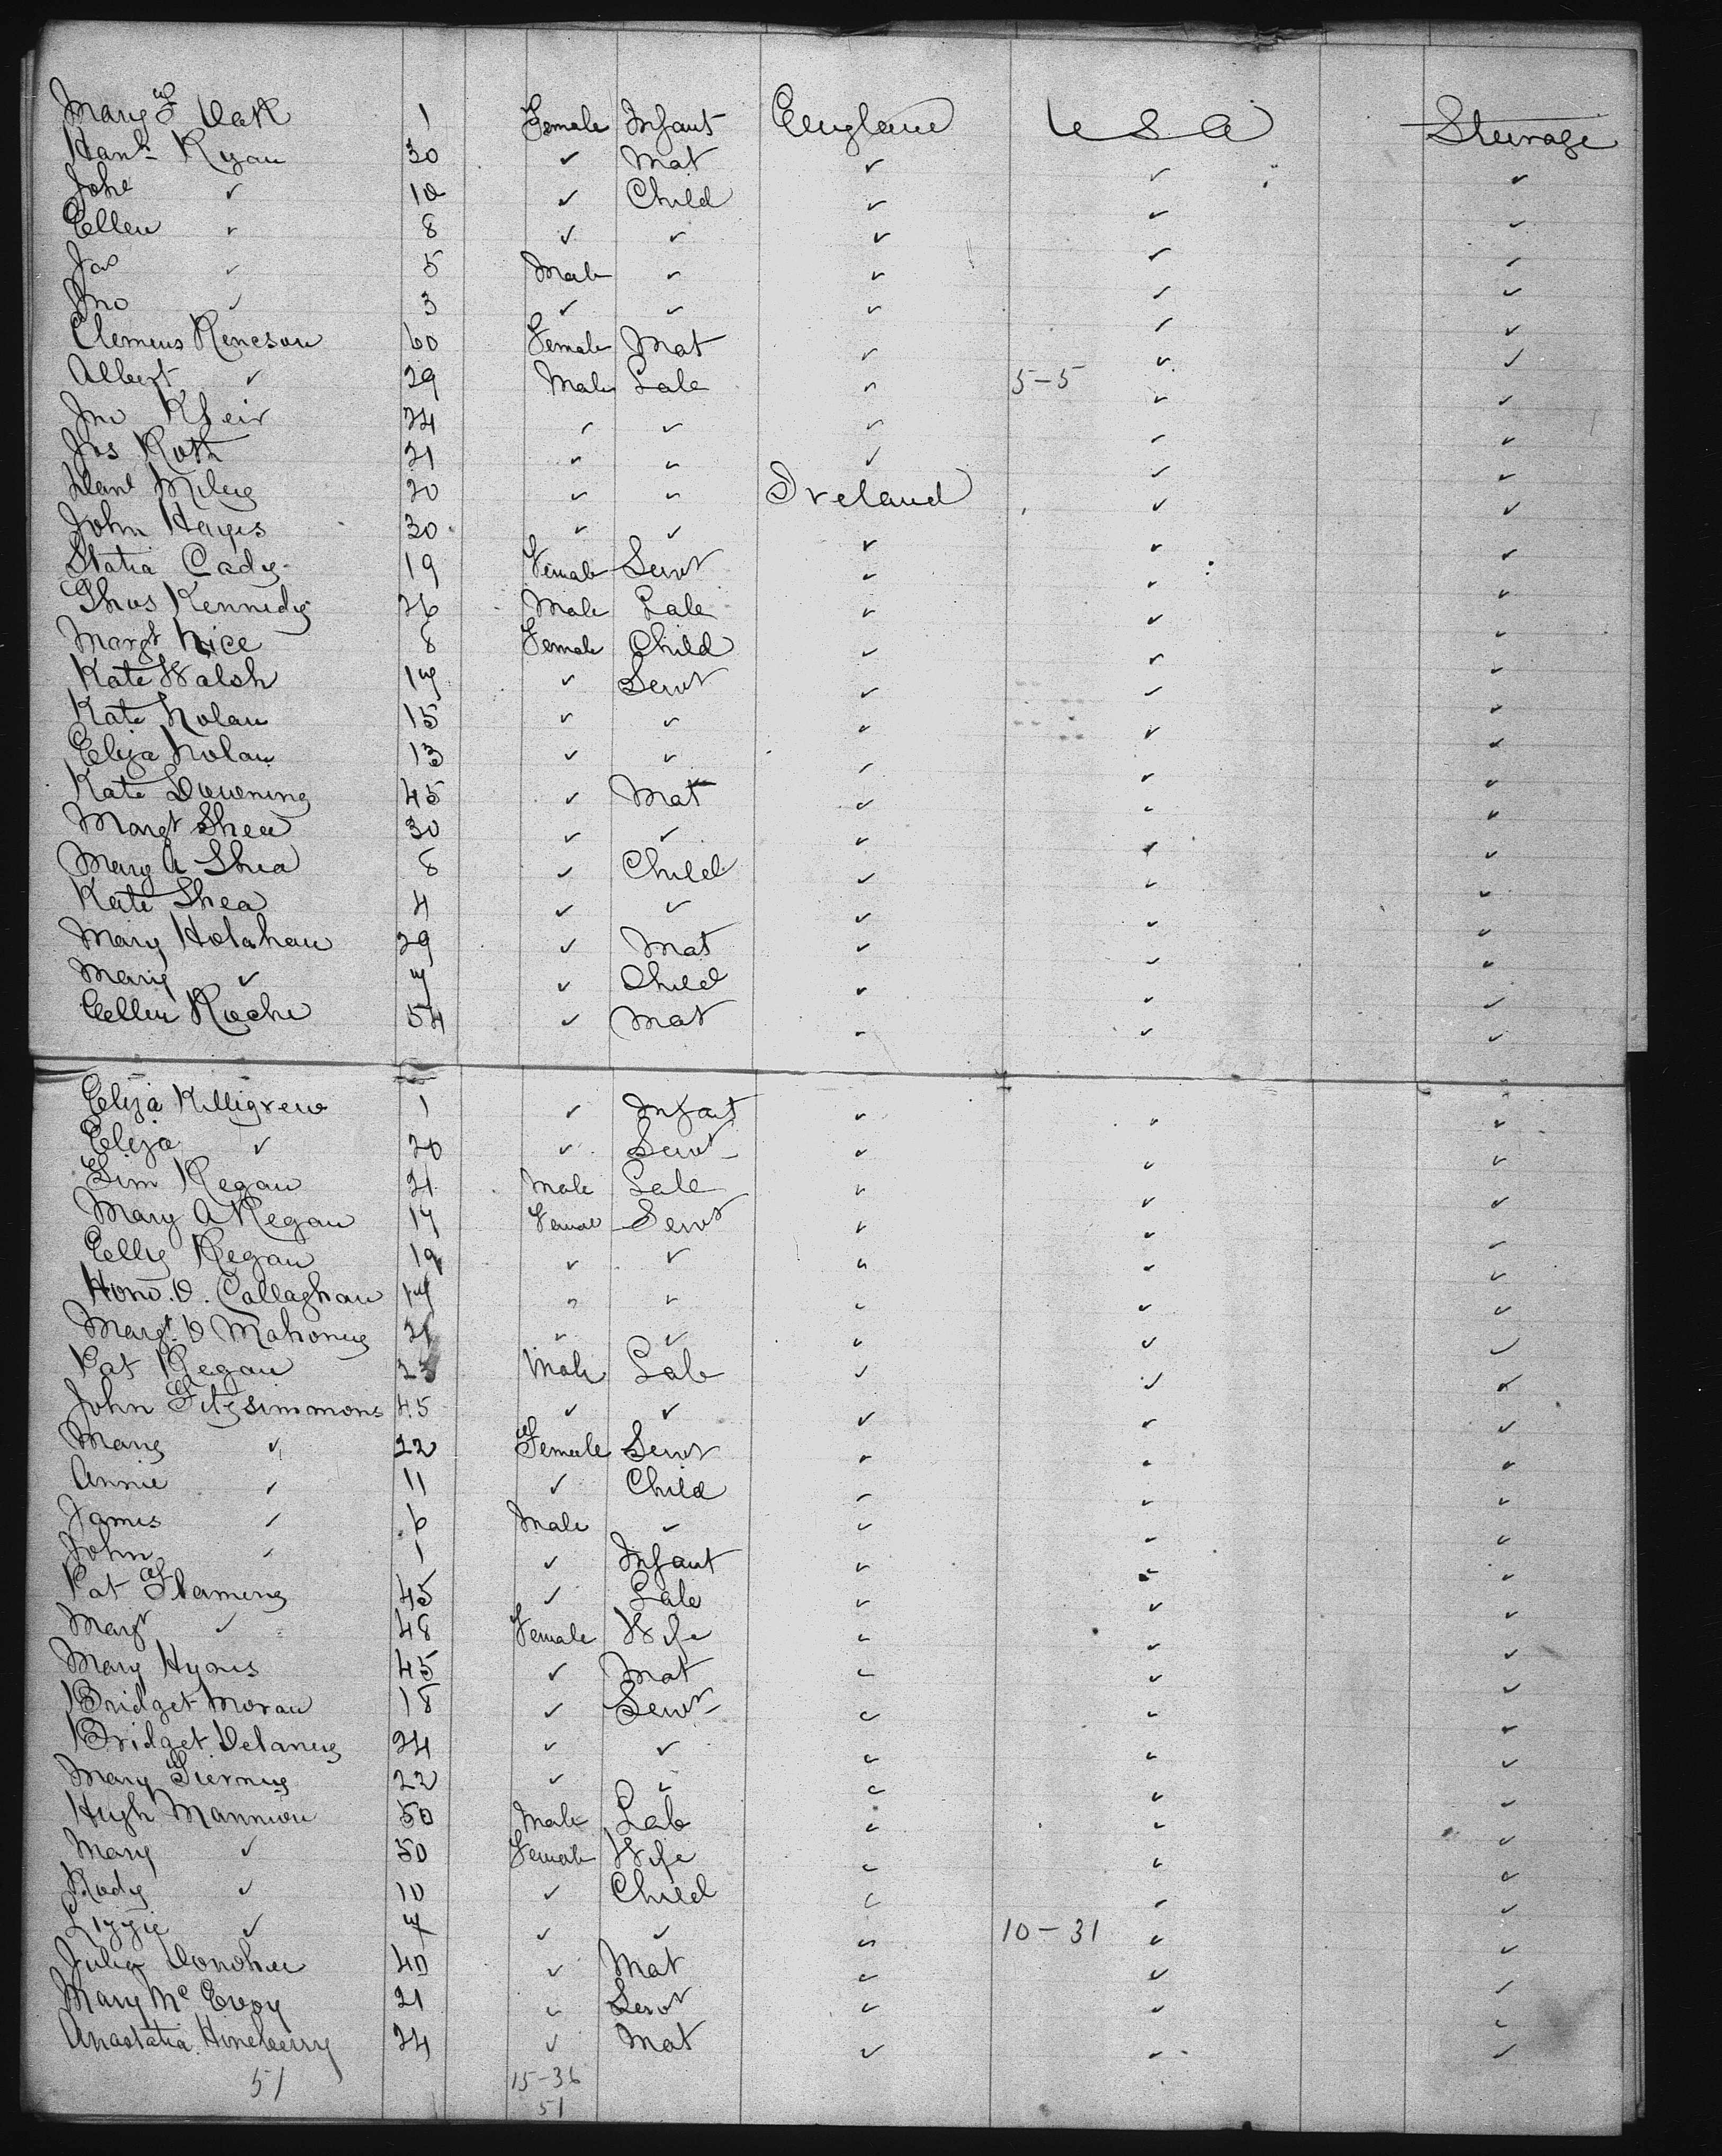 Mary F Oak 1 Female Infant England U S A Steerage
Hanh Ryan 30 ✓ Mat ✓ ✓ ✓
Joh ✓ 10 ✓ Child ✓ ✓ ✓
Ellen ✓ 8 ✓ ✓ ✓ ✓ ✓
Jas ✓ 5 Male ✓ ✓ ✓ ✓
Jno ✓ 3 ✓ ✓ ✓ ✓ ✓
Clemens 60 Female Mat ✓ ✓ ✓
Albert ✓ 29 Male Lab ✓ 5-5 ✓ ✓
Jno Klein 24 ✓ ✓ ✓ ✓ ✓
Jos Roth 21 ✓ ✓ ✓ ✓ ✓
Danl Miley 20 ✓ ✓ Ireland ✓ ✓
John Hayes 30 ✓ ✓ ✓ ✓ ✓
Statia Cady 19 Female Servt ✓ ✓ ✓
Thos Kennedy 26 Male Lab ✓ ✓ ✓
Margt Nice 8 Female Child ✓ ✓ ✓
Kate Walsh 17 ✓ Servt ✓ ✓ ✓
Kate Nolan 15 ✓ ✓ ✓ ✓ ✓
Eliza Nolan 13 ✓ ✓ ✓ ✓ ✓
Kate Downing 45 ✓ Mat ✓ ✓ ✓
Margt Shea 30 ✓ ✓ ✓ ✓ ✓
Mary A Shea 8 ✓ Child ✓ ✓ ✓
Kate Shea 4 ✓ ✓ ✓ ✓ ✓
Mary Holahan 29 ✓ Mat ✓ ✓ ✓
Mary ✓ 7 ✓ Child ✓ ✓ ✓
Ellen Roche 54 ✓ Mat ✓ ✓ ✓
Eliza Killigrew 1 ✓ Infant ✓ ✓ ✓
Eliza ✓ 20 ✓ Servt ✓ ✓ ✓
Tim Regan 21 Male Lab ✓ ✓ ✓
Mary A Regan 17 Female Servt ✓ ✓ ✓
Elly Regan 19 ✓ ✓ ✓ ✓ ✓
Hono. O. Callaghan 17 ✓ ✓ ✓ ✓ ✓
Margt. O Mahoney 21 ✓ ✓ ✓ ✓ ✓
Pat Regan Male Lab ✓ ✓ ✓
John Fitzsimmons 45 ✓ ✓ ✓ ✓ ✓
Mary ✓ 22 Female Servt ✓ ✓ ✓
Annie ✓ 11 ✓ Child ✓ ✓ ✓
James ✓ 6 Male ✓ ✓ ✓ ✓
John ✓ 1 ✓ Infant ✓ ✓ ✓
Pat Flaming 45 ✓ Lab ✓ ✓ ✓
Margt ✓ 48 Female Wife ✓ ✓ ✓
Mary Hynes 45 ✓ Mat ✓ ✓ ✓
Bridget Moran 18 ✓ Servt ✓ ✓ ✓
Bridget Delaney 24 ✓ ✓ ✓ ✓ ✓
Mary Tierney 22 ✓ ✓ ✓ ✓ ✓
Hugh Mannion 50 Male Lab ✓ ✓ ✓
Mary ✓ 50 Female Wife ✓ ✓ ✓
Rody ✓ 10 ✓ Child ✓ ✓ ✓
Lizzie ✓ 7 ✓ ✓ ✓ 10-31 ✓ ✓
Julia Donohue 40 ✓ Mat ✓ ✓ ✓
Mary Mc Evoy 21 ✓ Servt ✓ ✓ ✓
Anastatia Hineberry 24 ✓ Mat ✓ ✓ ✓
51 15-36
51